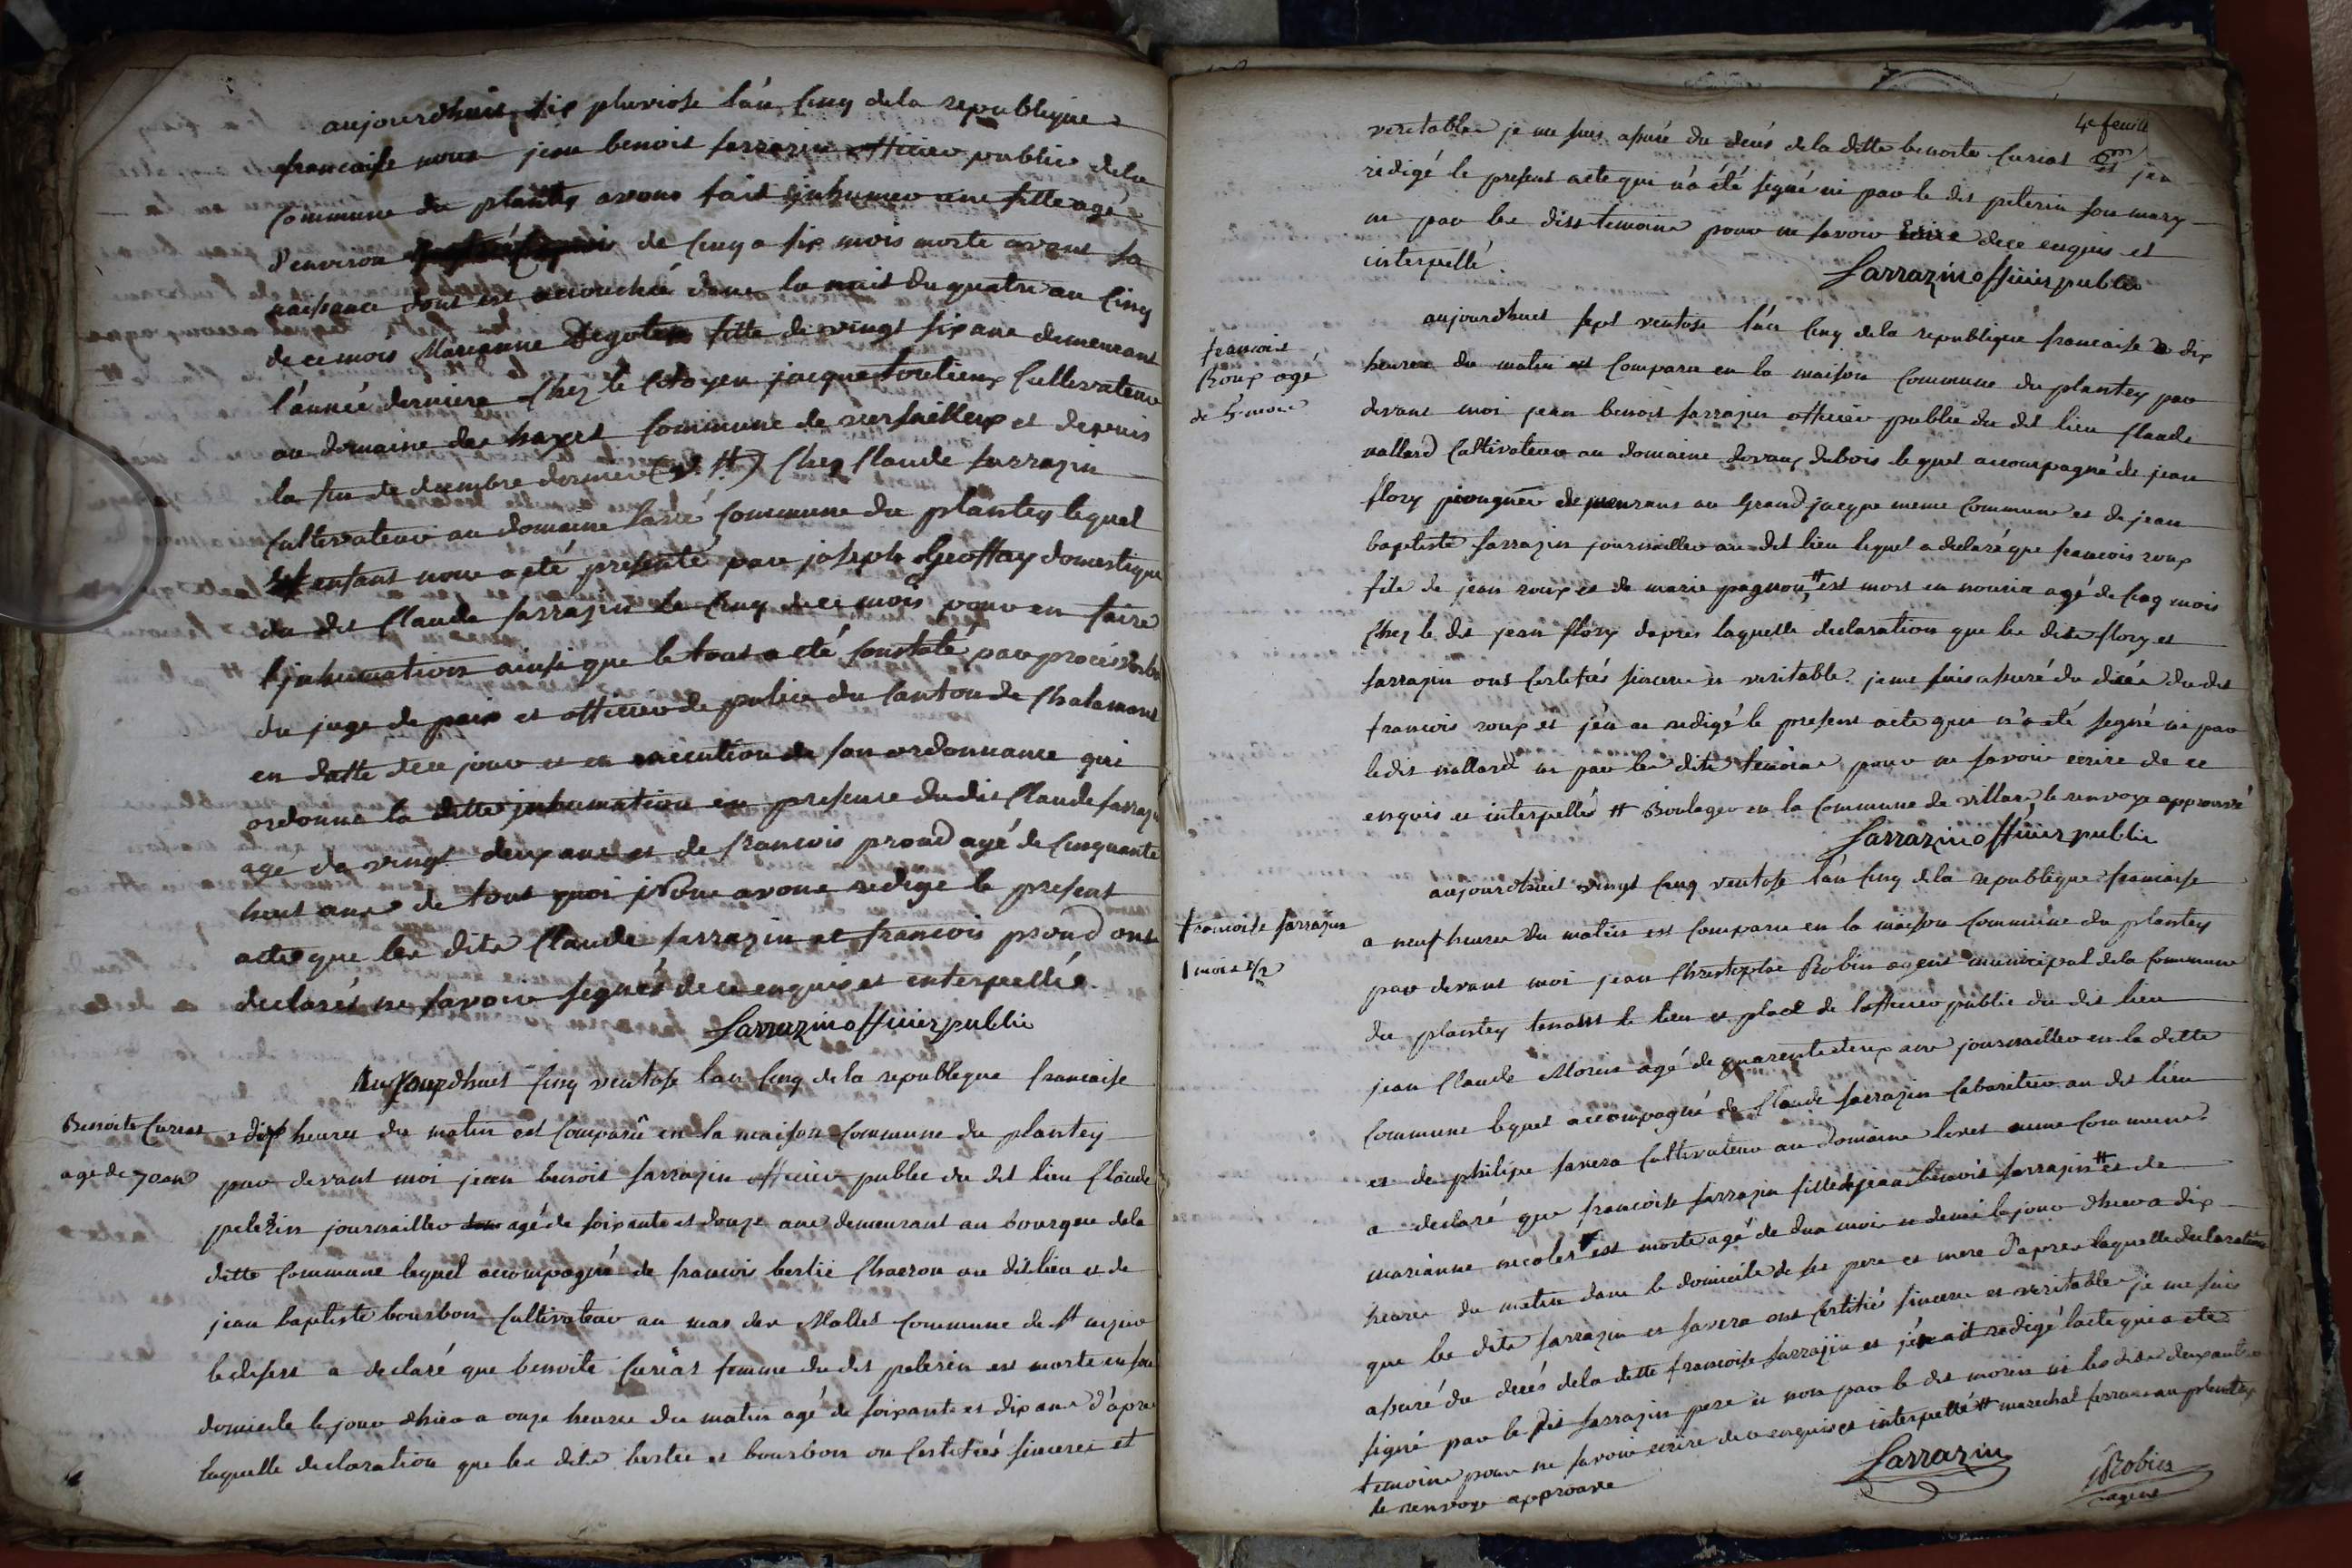 aujourdhuit six pluviose l'an cinq de la republique
francaise nous jean benoit sarrazin officier public dela
commune du plantey avons fait inhumer une fille agé
d'environ de cinq a six mois morte avant sa
naissance dont est accouchée dans la nuit du quatre au cinq
de ce mois Marianne fille de vingt six ans demeurant
l'année derniere chez le citoyen jacque cultivateur
au domaine des commune de versailleux et depuis
la fin de decembre dernier (v. st.) chez claude sarrazin
cultivateur au domaine commune du plantey lequel
enfant nous a eté presenté par joseph Geoffray domestique
du dit claude sarrazin le cinq de ce mois pour en faire
l'inhumation ainsi que le tout a eté constaté par procés verbal
du juge de paix et officier de police du canton de chalamont
en datte de ce jour et en execution de son ordonnance qui
ordonne la ditte inhumation en presence du dit claude sarrazin
agé de vingt deux ans et de francois proud agé de cinquante
huit ans de tout quoi Nous avons redigé le present
acte que les dits claude sarrazin et francois proud ont
declarés ne savoir signés de ce enquis et interpellés.
Sarrazin officier public
Benoite Curias
agé de 70 ans
Aujourdhuit cinq ventose l'an cinq de la republique francaise
a dix heures du matin est comparû en la maison commune du plantey
par devant moi jean benoit sarrazin officier public du dit lieu claude
pelerin journaillier agé de soixante et douze ans demeurant au bourg de la
ditte commune lequel accompagné de francois bertié charron au dit lieu et de
jean baptiste bourbon cultivateur au mas des Mallet commune de st nizier
le desert a declaré que benoite curias femme du dit pelerin est morte en son
domicile le jour dhier a onze heures du matin agé de soixante et dix ans d'apres
laquelle declaration que les dits bertié et bourbon on certifiés sincere et
4e feuille
veritable je me suis assuré du décés de la ditte benoite curias et jen
redigé le present acte qui n'a été signé ni par le dit pelerin son mary
ni par les dits temoins pour ne savoir ecrire de ce enquis et
interpellé.
Sarrazin officier public
francois
Roux agé
de 5 mois
aujourdhuit sept ventose l'an cinq de la republique francaise a dix
heures du matin est comparu en la maison commune du plantey par
devant moi jean benoit sarrazin officier public du dit lieu claude
nallard cultivateur au domaine dubois lequel accompagné de jean
flory demeurant au Grand jacque meme commune et de jean
baptiste sarrazin journaillier au dit lieu lequel a declaré que francois roux
fils de jean roux et de marie pagnon # est mort en nourice agé de cinq mois
chez le dit jean flory dapres laquelle declaration que les dits flory et
sarrazin ont certifiés sincere et veritable. je me suis assuré du décés du dit
francois roux et jen ai redigé le present acte qui n'a été signé ni par
le dit nallard ni par les dits temoins pour ne savoir ecrire de ce
enquis et interpellés # Boulager en la commune de villars le renvoye approuvé
Sarrazin officier public
francoise sarrazin
1 mois 1/2
aujourdhuit vingt cinq ventose l'an cinq de la republique francaise
a neuf heures du matin est comparu en la maison commune du plantey
par devant moi jean christophe Robin agent municipal de la commune
du plantey tenant le lieu et place de lofficier public du dit lieu
jean claude Morin agé de quarente deux ans journaillier en la ditte
commune lequel accompagné de claude sarrazin cabaretier au dit lieu
et de philipe savera cultivateur au domaine livet meme commune
a declaré que francoise sarrazin fille de jean benoit sarrazin # et de
marianne nicolet est morte agé de dun mois et demi le jour dhier a dix
heures du matin dans le domicile de ses pere et mere d'apres laquelle declaration
que les dits sarrazin et savera ont certifié sincere et veritable. je me suis
assuré du decés de la ditte francoise sarrazin et j'en ait redigé lacte qui a eté
signé par le dit sarrazin pere et non par le dit morin ni les dits deux autres
temoins pour ne savoir ecrire de ce enquis et interpellé # marechal ferrant au plantey
le renvoye approuvé
Sarrazin
Robin
agent